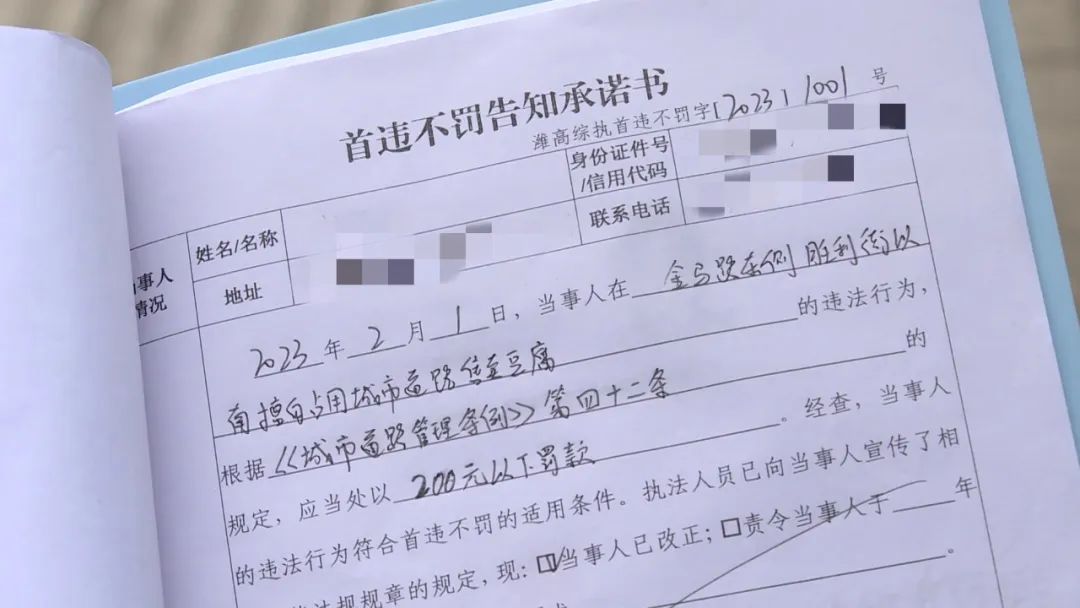 首违不罚告知承诺书
潍高综执首违不罚字[2023]1001号
事人
情况
姓名/名称
身份证件号
/信用代码
地址
联系电话
2023年2月1日,当事人在金马路东侧胜利街以
南擅自占用城市道路售卖豆腐的违法行为,
根据《城市道路管理条例》第四十二条的
规定,应当处以200元以下罚款。经查,当事人
的违法行为符合首违不罚的适用条件。执法人员已向当事人宣传了相
法规规章的规定,现:☑当事人已改正;□责令当事人于 年
。